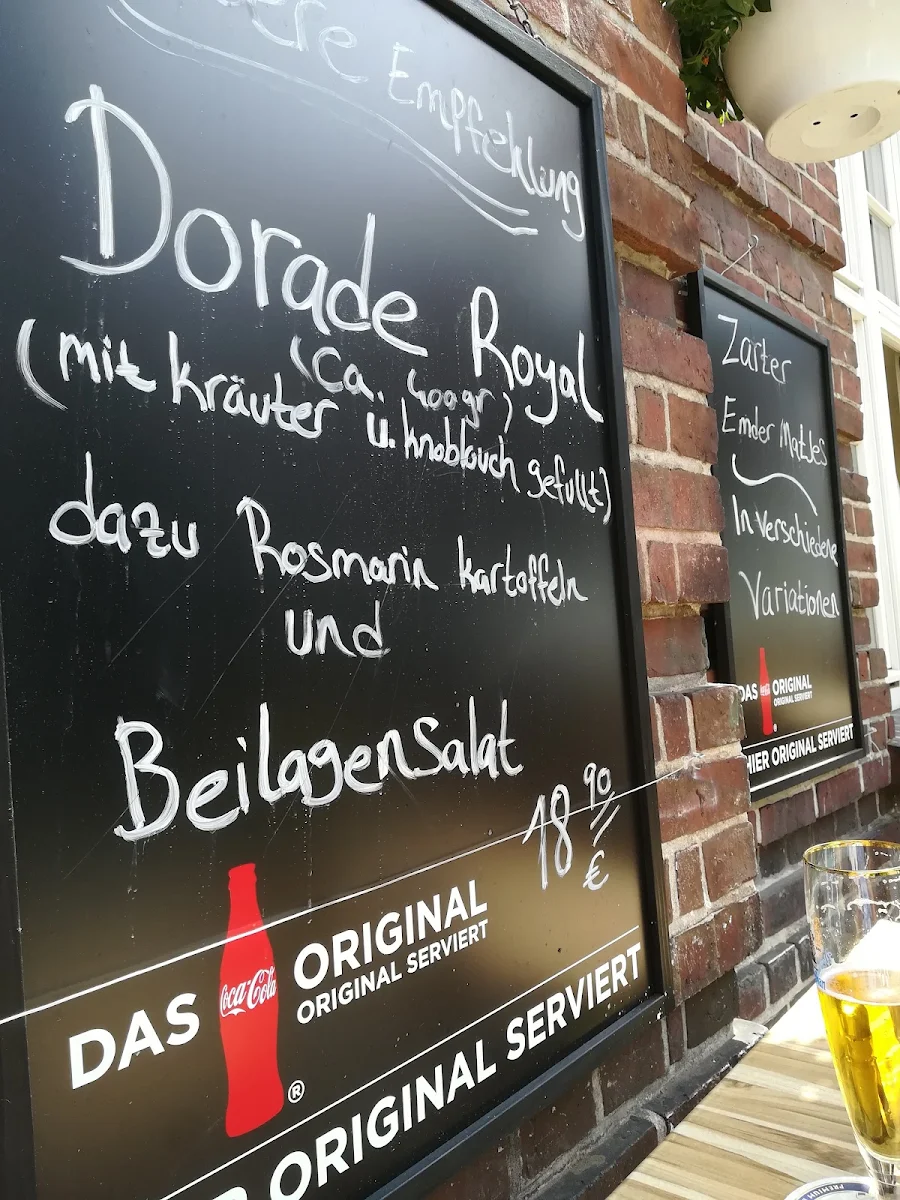 Empfehlung
Dorade Royal
(ca. 400gr)
(mit kräuter u. knoblauch gefüllt)
dazu Rosmarin kartoffeln
und
Beilagensalat
18 90
€
DAS Coca-Cola ORIGINAL
ORIGINAL SERVIERT
®
ORIGINAL SERVIERT
Zarter
Emder Matjes
In verschiedene
Variationen
DAS Coca-Cola ORIGINAL
ORIGINAL SERVIERT
HIER ORIGINAL SERVIERT
PREMIUM